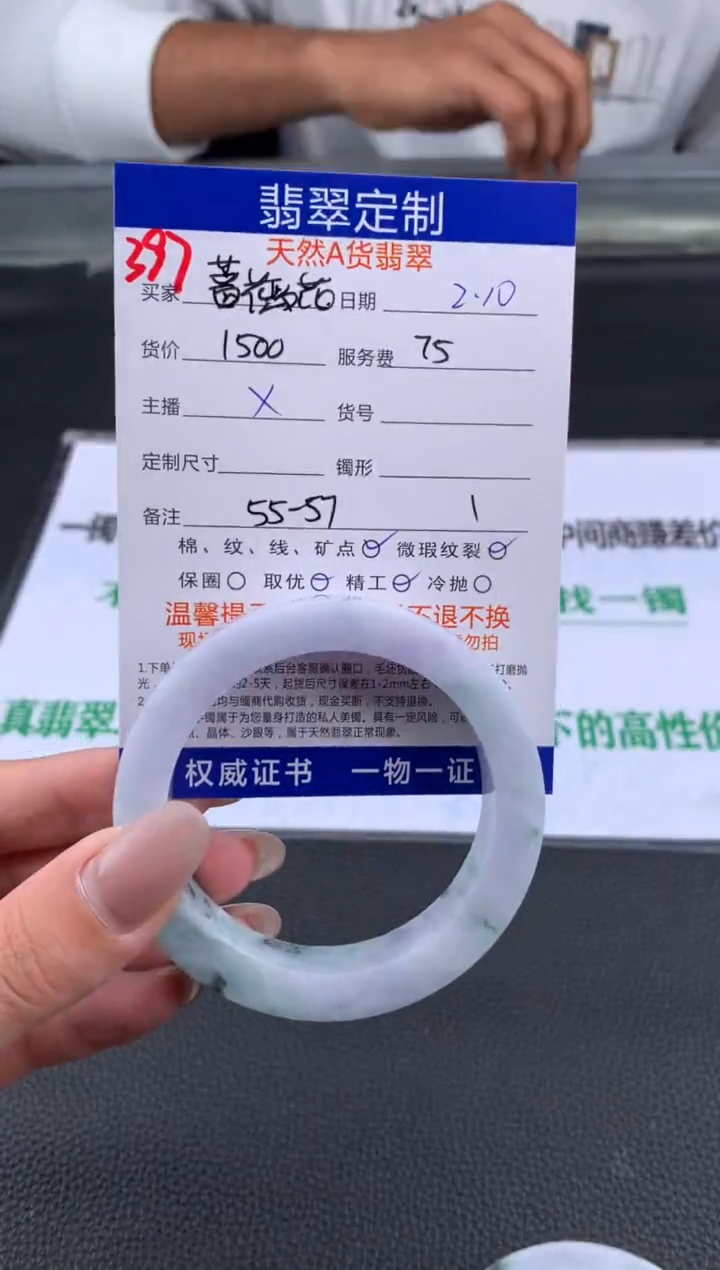 翡翠定制
397 天然A货翡翠
买家 日期 2.10
货价 1500 服务费 75
主播 X 货号
定制尺寸 镯形
备注 55-57 1
棉、纹、线、矿点 微瑕纹裂
保圈 取优 精工 冷抛
温馨提 不退不换
现 勿拍
1.下单 后台客服确认圈口,毛坯 打磨抛
光, 2-5天,起货后尺寸误差在1-2mm左右
2 均与缅商代购收货,现金买断,不支持退换。
镯属于为您量身打造的私人美镯。具有一定风险,可
、晶体、沙眼等,属于天然翡翠正常现象。
权威证书 一物一证
中间商赚差价
找一镯
真翡翠 下的高性价